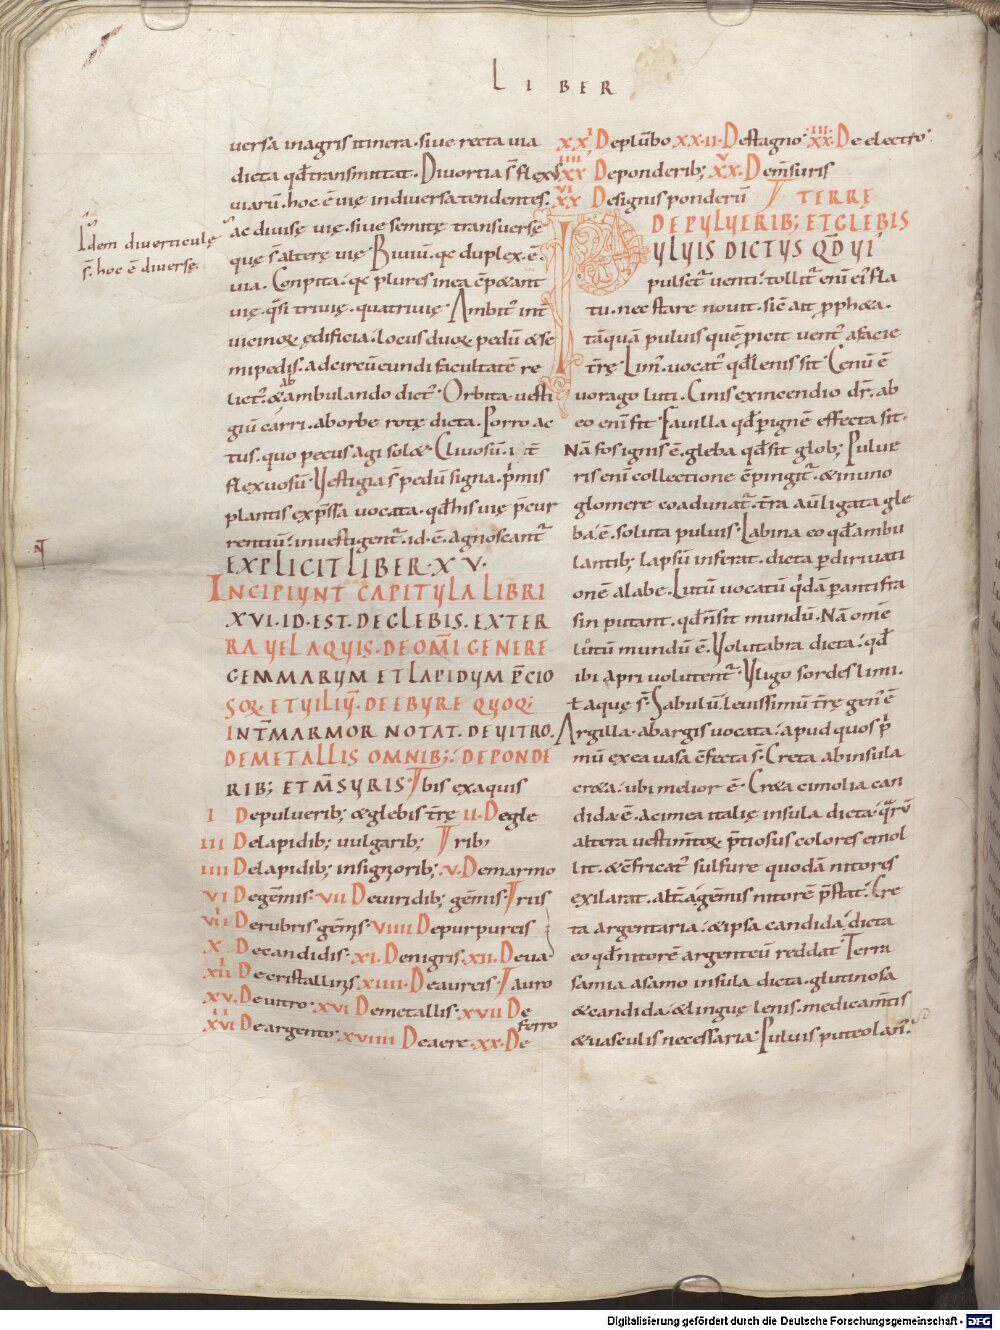 LIBER
uersa inagris itinera·siue recta uia
dicta qđ transmittat. Diuortia s̄ flexꝰ
uiarū·hoc ē uie indiuersa tendentes·
Idem diuerticulę
s̄· hoc ē diuersę·
ac diuisę uię·siue semitę transuersę
quę s̄ alterę uię· Biuiū·qc duplex·ē·
uia· Conpita·qc plures inea
uię·q̄si triuię·quatriuię· Ambitꝰ int̄
ędificia·Locus duoꝝ pedū & se
mipedis·adcircūeundi facultatē re
lictꝰ·& abambulando dictꝰ· Orbita uesti
giū carri·aborbe rotę dicta· Porro ac
tus·quo pecus agi sol&· Cliuosū·
flexuosū· Vestigia s̄ pedū signa·p̄mis
plantis exp̄ssa uocata·qđ his uię p̄cur
rentiū·inuestigent᷑·id·ē·agnoscant᷑
EXPLICIT LIBER·XV·
INCIPIUNT CAPITULA LIBRI
XVI·ID·EST·DE GLEBIS·EXTER
RA VEL AQVIS·DE OM̄I GENERE
GEMMARVM ET LAPIDVM P̄CIO
SOꝜ·ET VILIV̄·DE EBVRE QVOQ;
INT̄ MARMOR NOTAT·DE VITRO·
DE METALLIS OMNIB;·DE PONDE
RIB; ET M̄SVRIS· bis exaquis
I Depuluerib; & glebis t̄rę II·Degle
III Delapidib; uulgarib; rib;
IIII Delapidib; insigniorib;·V·Demarmo
VI Degēmis·VII Deuiridib; gēmis· riis
VIII Derubris gēmis·VIIII Depurpureis
X Decandidis·XI·Denigris·XII·Deua
XIII Decristallinis·XIIII·Deaureis· auro
XV·Deuitro·XVI Demetallis·XVII De
XVIII Deargento·XVIIII Deaere·XX·De ferro
XXI Deplūbo XXII·Destagno·XXIII·Deelectro·
XXIIII Deponderib; XXV·Demēsuris
XXVI Designis ponderū TERRĘ
DE PVLVERIB; ET GLEBIS
PVLVIS DICTVS QĐ VI
pulset᷑ uenti·tollit᷑ enī eiꝰ fla
tu·nec stare nouit·sic̄ ait p̄ph&a·
tāquā puluis quē p̄icit uentꝰ afacie
t̄rę· Limꝰ·uocatꝰ qđ lenis sit· Cenū ē
uorago luti· Cinis exincendio dr̄·ab
eo enī fit· Fauilla qđ p̄ignē effecta sit·
Nā fos ignis ē·gleba qđ sit glob; Pulue
ris enī collectione cōpingit᷑·& inuno
glomere coadunat᷑·t̄ra aū ligata gle
ba ē·soluta puluis· Labina eo qđ ambu
lantib; lapsū inferat·dicta p̄diriuati
onē alabe· Lutū uocatū q'dā p̄antifra
sin putant·qđ n̄ sit mundū·Nā om̄e
lutū mundū ē· Volutabra dicta·qđ
ibi apri uolutent᷑· Vligo sordes limi·
ł aquę s̄· Sabulū·leuissimū t̄rę genꝰ ē·
Argilla·abargis uocata·apud quos p̄
mū exea uasa cōfecta s̄· Creta abinsula
cr&a·ubi melior ē· Cr&a cimolia can
dida ē·acimea italię insula dicta·quarū
altera uestim̄toꝝ p̄tiosus colores emol
lit·& cōfricat᷑ sulfure quodā nitores
exilarat·alt̄a āgēmis nitorē p̄stat· Cre
ta argentaria·& ipsa candida·dicta
eo qđ nitorē argenteū reddat· Terra
samia asamo insula dicta·glutinosa
& candida·& linguę lenis·medicam̄tis
& uasculis necessaria· Puluis puteolanꝰ·